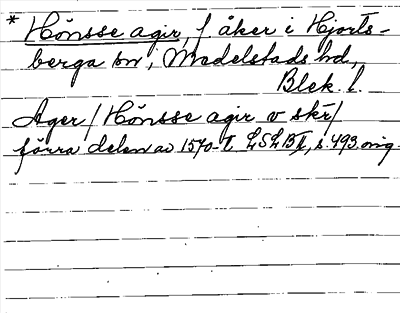 * Hönsse agir, f. åker i Hjorts-
berga sn, Medelstads hd,
Blek. l.
Ager / Hönsse agir v skr/
förra delen av 1570-t. LSLB II, s. 493. orig.